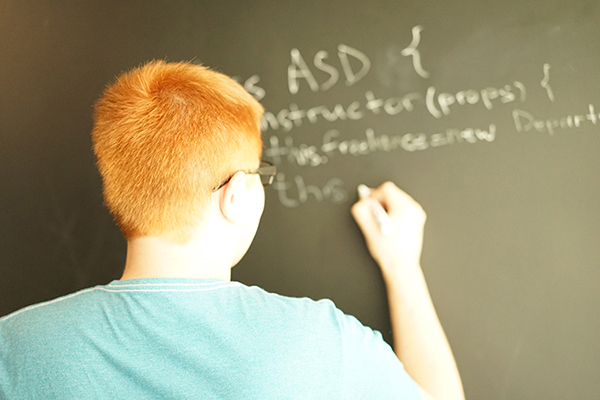 ss ASD {
nstructor (props) {
this.freelancers = new Departm
this